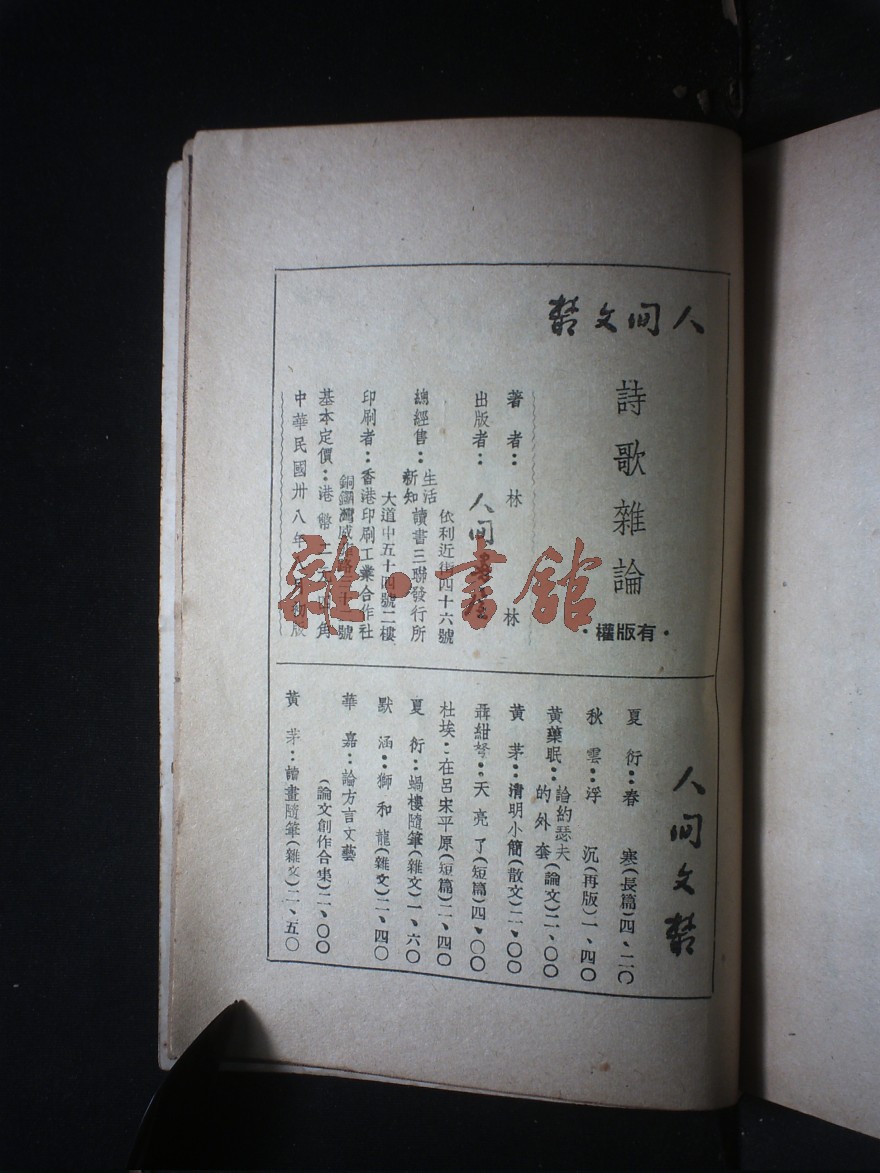 人间文丛
詩歌雜論
·有版權·
著者：林林
出版者：人间書屋
依利近街四十六號
總經售：生活新知讀書三聯發行所
大道中五十四號二樓
印刷者：香港印刷工業合作社
銅鑼灣
基本定價：港幣二元 角
中華民國卅八年 月初版
人间文丛
夏衍：春寒(長篇)四、二〇
秋雲：浮沉(再版)一、四〇
黃藥眠：論約瑟夫的外套(論文)二、〇〇
黃茅：清明小簡(散文)二、〇〇
聶紺弩：天亮了(短篇)四、〇〇
杜埃：在呂宋平原(短篇)二、四〇
夏衍：蝸樓隨筆(雜文)一、六〇
默涵：獅和龍(雜文)二、四〇
華嘉：論方言文藝
(論文創作合集)二、〇〇
黃茅：讀畫隨筆(雜文)二、五〇
雜·書館